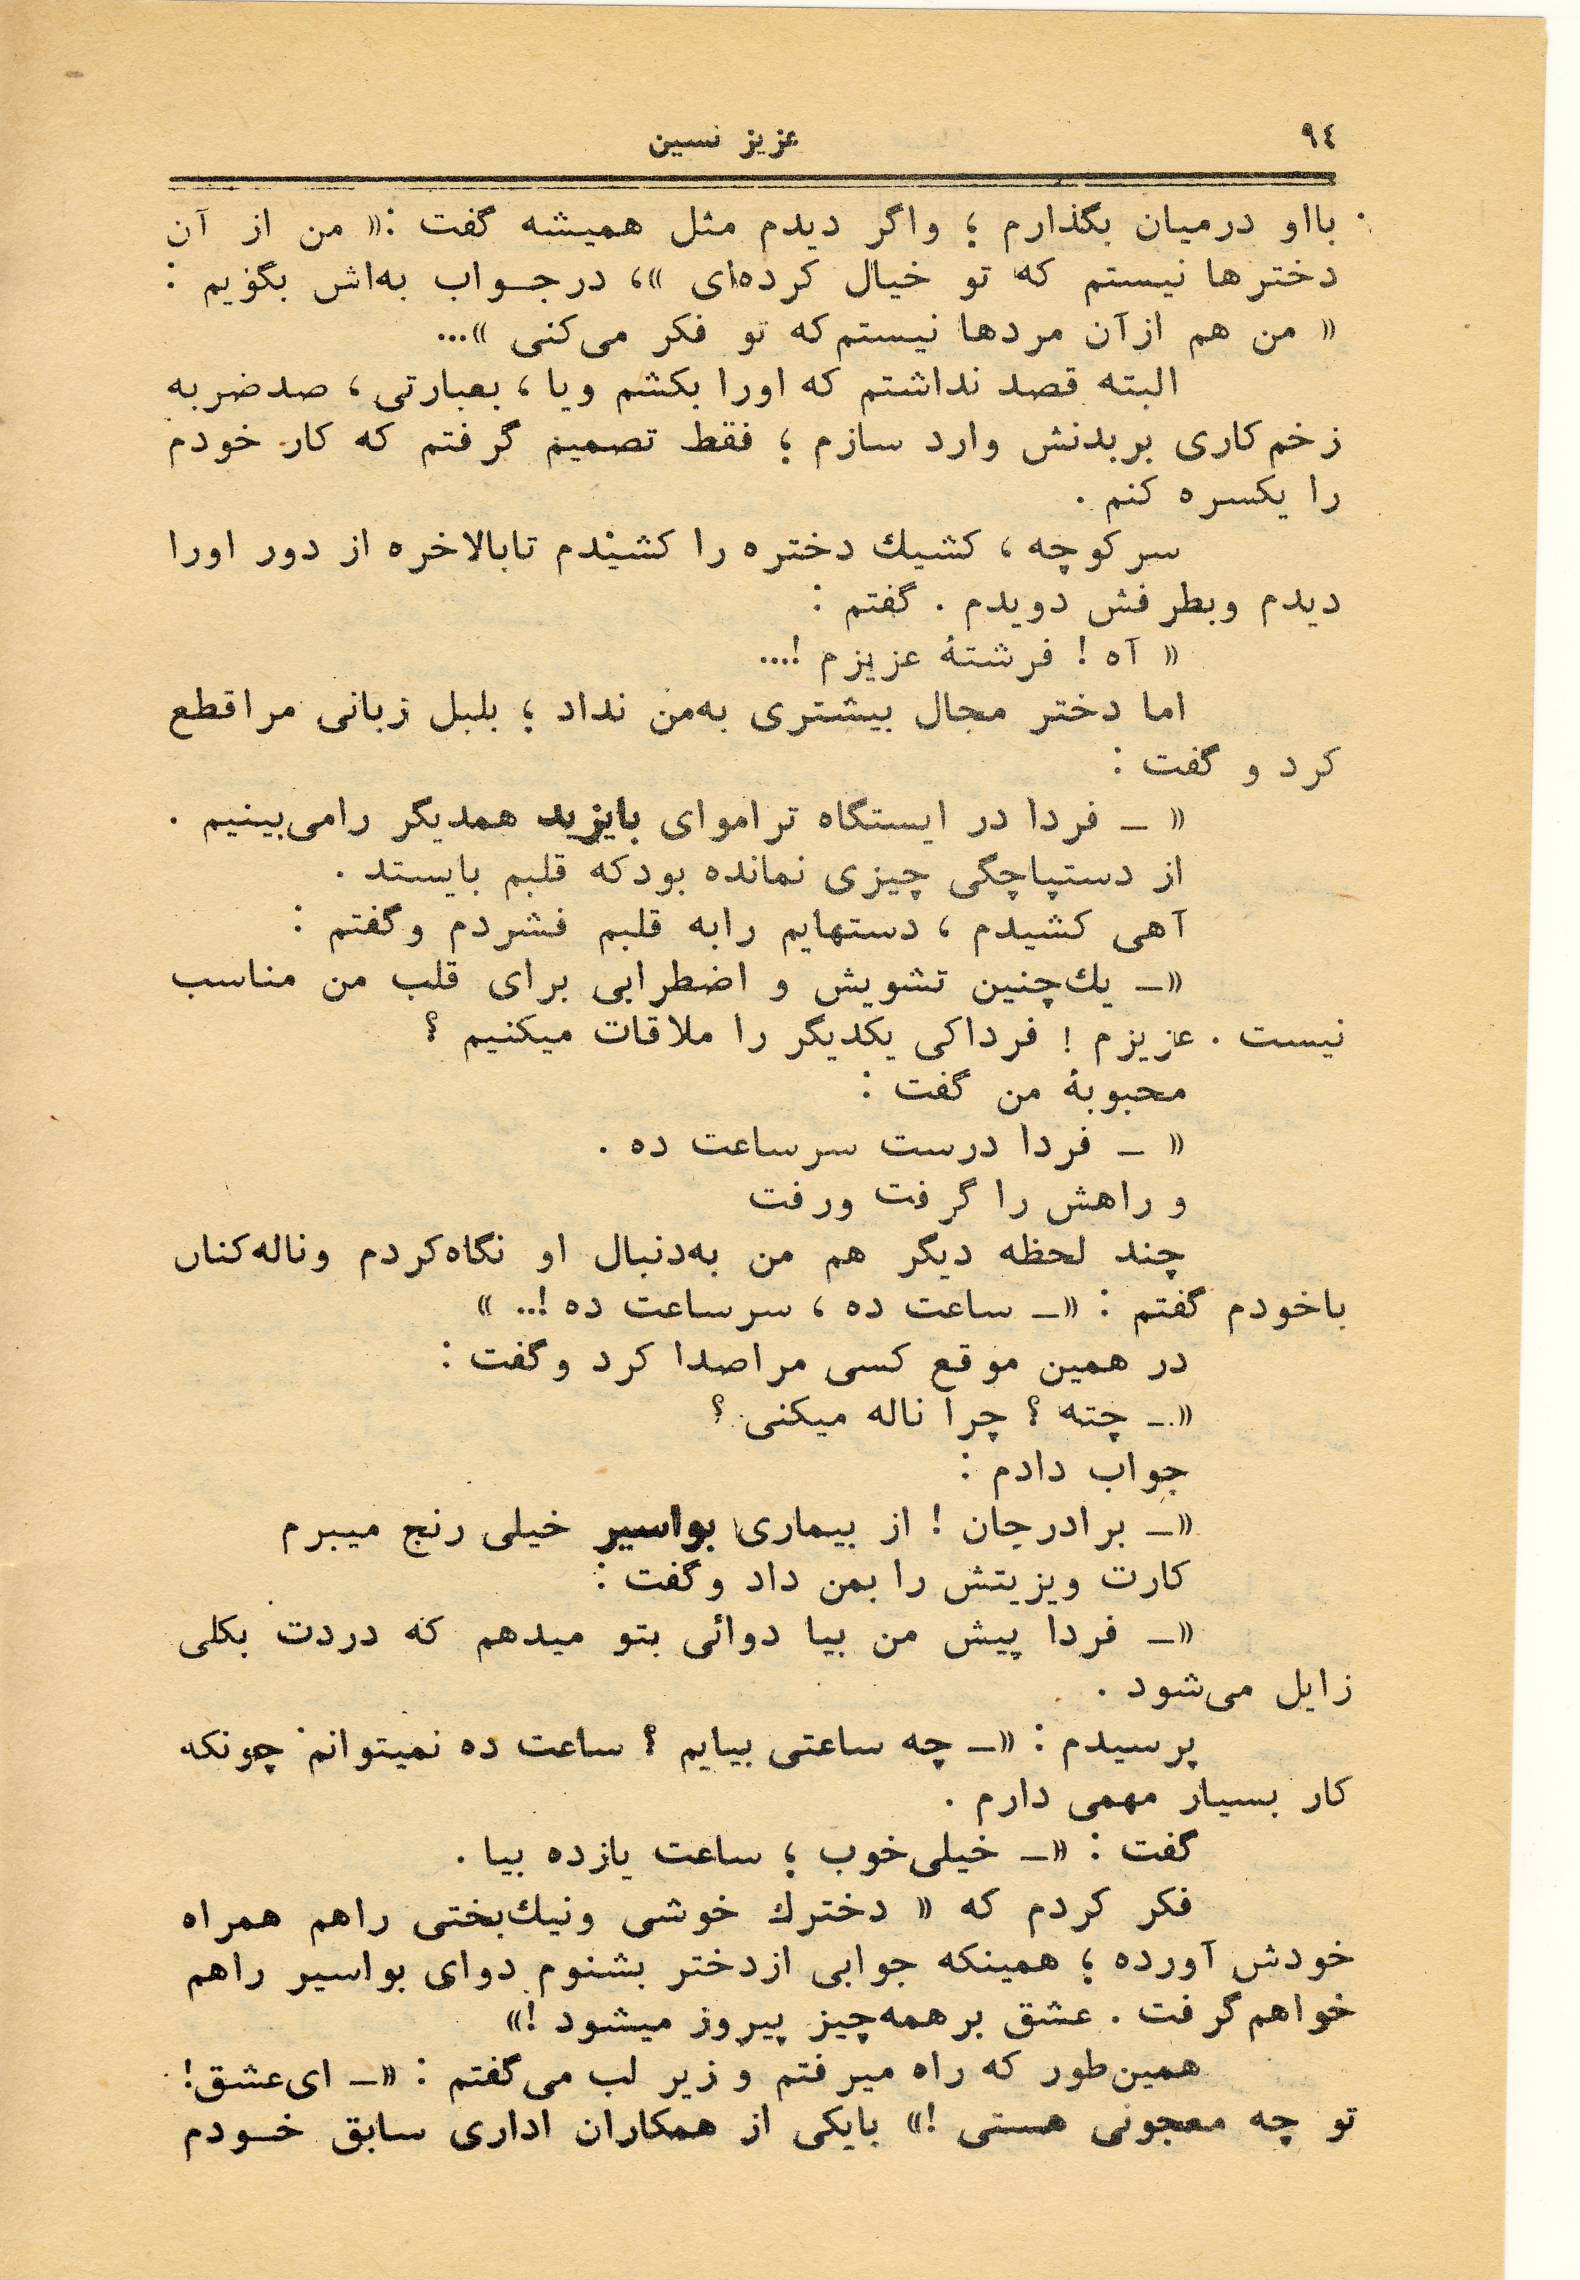 ۹٤
عزیز نسین
بااو درمیان بگذارم ؛ واگر دیدم مثل همیشه گفت :« من از آن
دخترها نیستم که تو خیال کرده‌ای »، درجـواب به‌اش بگویم :
« من هم ازآن مردها نیستم‌که تو فکر می‌کنی »...
البته قصد نداشتم که اورا بکشم ویا ، بعبارتی ، صدضربه
زخم‌کاری بربدنش وارد سازم ؛ فقط تصمیم گرفتم که کار خودم
را یکسره کنم .
سرکوچه ، کشیك دختره را کشیدم تابالاخره از دور اورا
دیدم وبطرفش دویدم . گفتم :
« آه ! فرشتهٔ عزیزم !...
اما دختر مجال بیشتری به‌من نداد ؛ بلبل زبانی مراقطع
کرد و گفت :
« ـ فردا در ایستگاه تراموای بایزید همدیگر رامی‌بینیم .
از دستپاچگی چیزی نمانده بودکه قلبم بایستد .
آهی کشیدم ، دستهایم رابه قلبم فشردم وگفتم :
«ـ یك‌چنین تشویش و اضطرابی برای قلب من مناسب
نیست . عزیزم ! فرداکی یکدیگر را ملاقات میکنیم ؟
محبوبهٔ من گفت :
« ـ فردا درست سرساعت ده .
و راهش را گرفت ورفت
چند لحظه دیگر هم من به‌دنبال او نگاه‌کردم وناله‌کنان
باخودم گفتم : «ـ ساعت ده ، سرساعت ده !.. »
در همین موقع کسی مراصدا کرد وگفت :
«ـ چته ؟ چرا ناله میکنی ؟
جواب دادم :
«ـ برادرجان ! از بیماری بواسیر خیلی رنج میبرم
کارت ویزیتش را بمن داد وگفت :
«ـ فردا پیش من بیا دوائی بتو میدهم که دردت بکلی
زایل می‌شود .
پرسیدم : «ـ چه ساعتی بیایم ؟ ساعت ده نمیتوانم چونکه
کار بسیار مهمی دارم .
گفت : «ـ خیلی‌خوب ؛ ساعت یازده بیا .
فکر کردم که « دخترك خوشی ونیك‌بختی راهم همراه
خودش آورده ؛ همینکه جوابی ازدختر بشنوم دوای بواسیر راهم
خواهم‌گرفت . عشق برهمه‌چیز پیروز میشود !»
همین‌طور که راه میرفتم و زیر لب می‌گفتم : «ـ ای‌عشق!
تو چه معجونی هستی !» بایکی از همکاران اداری سابق خـودم